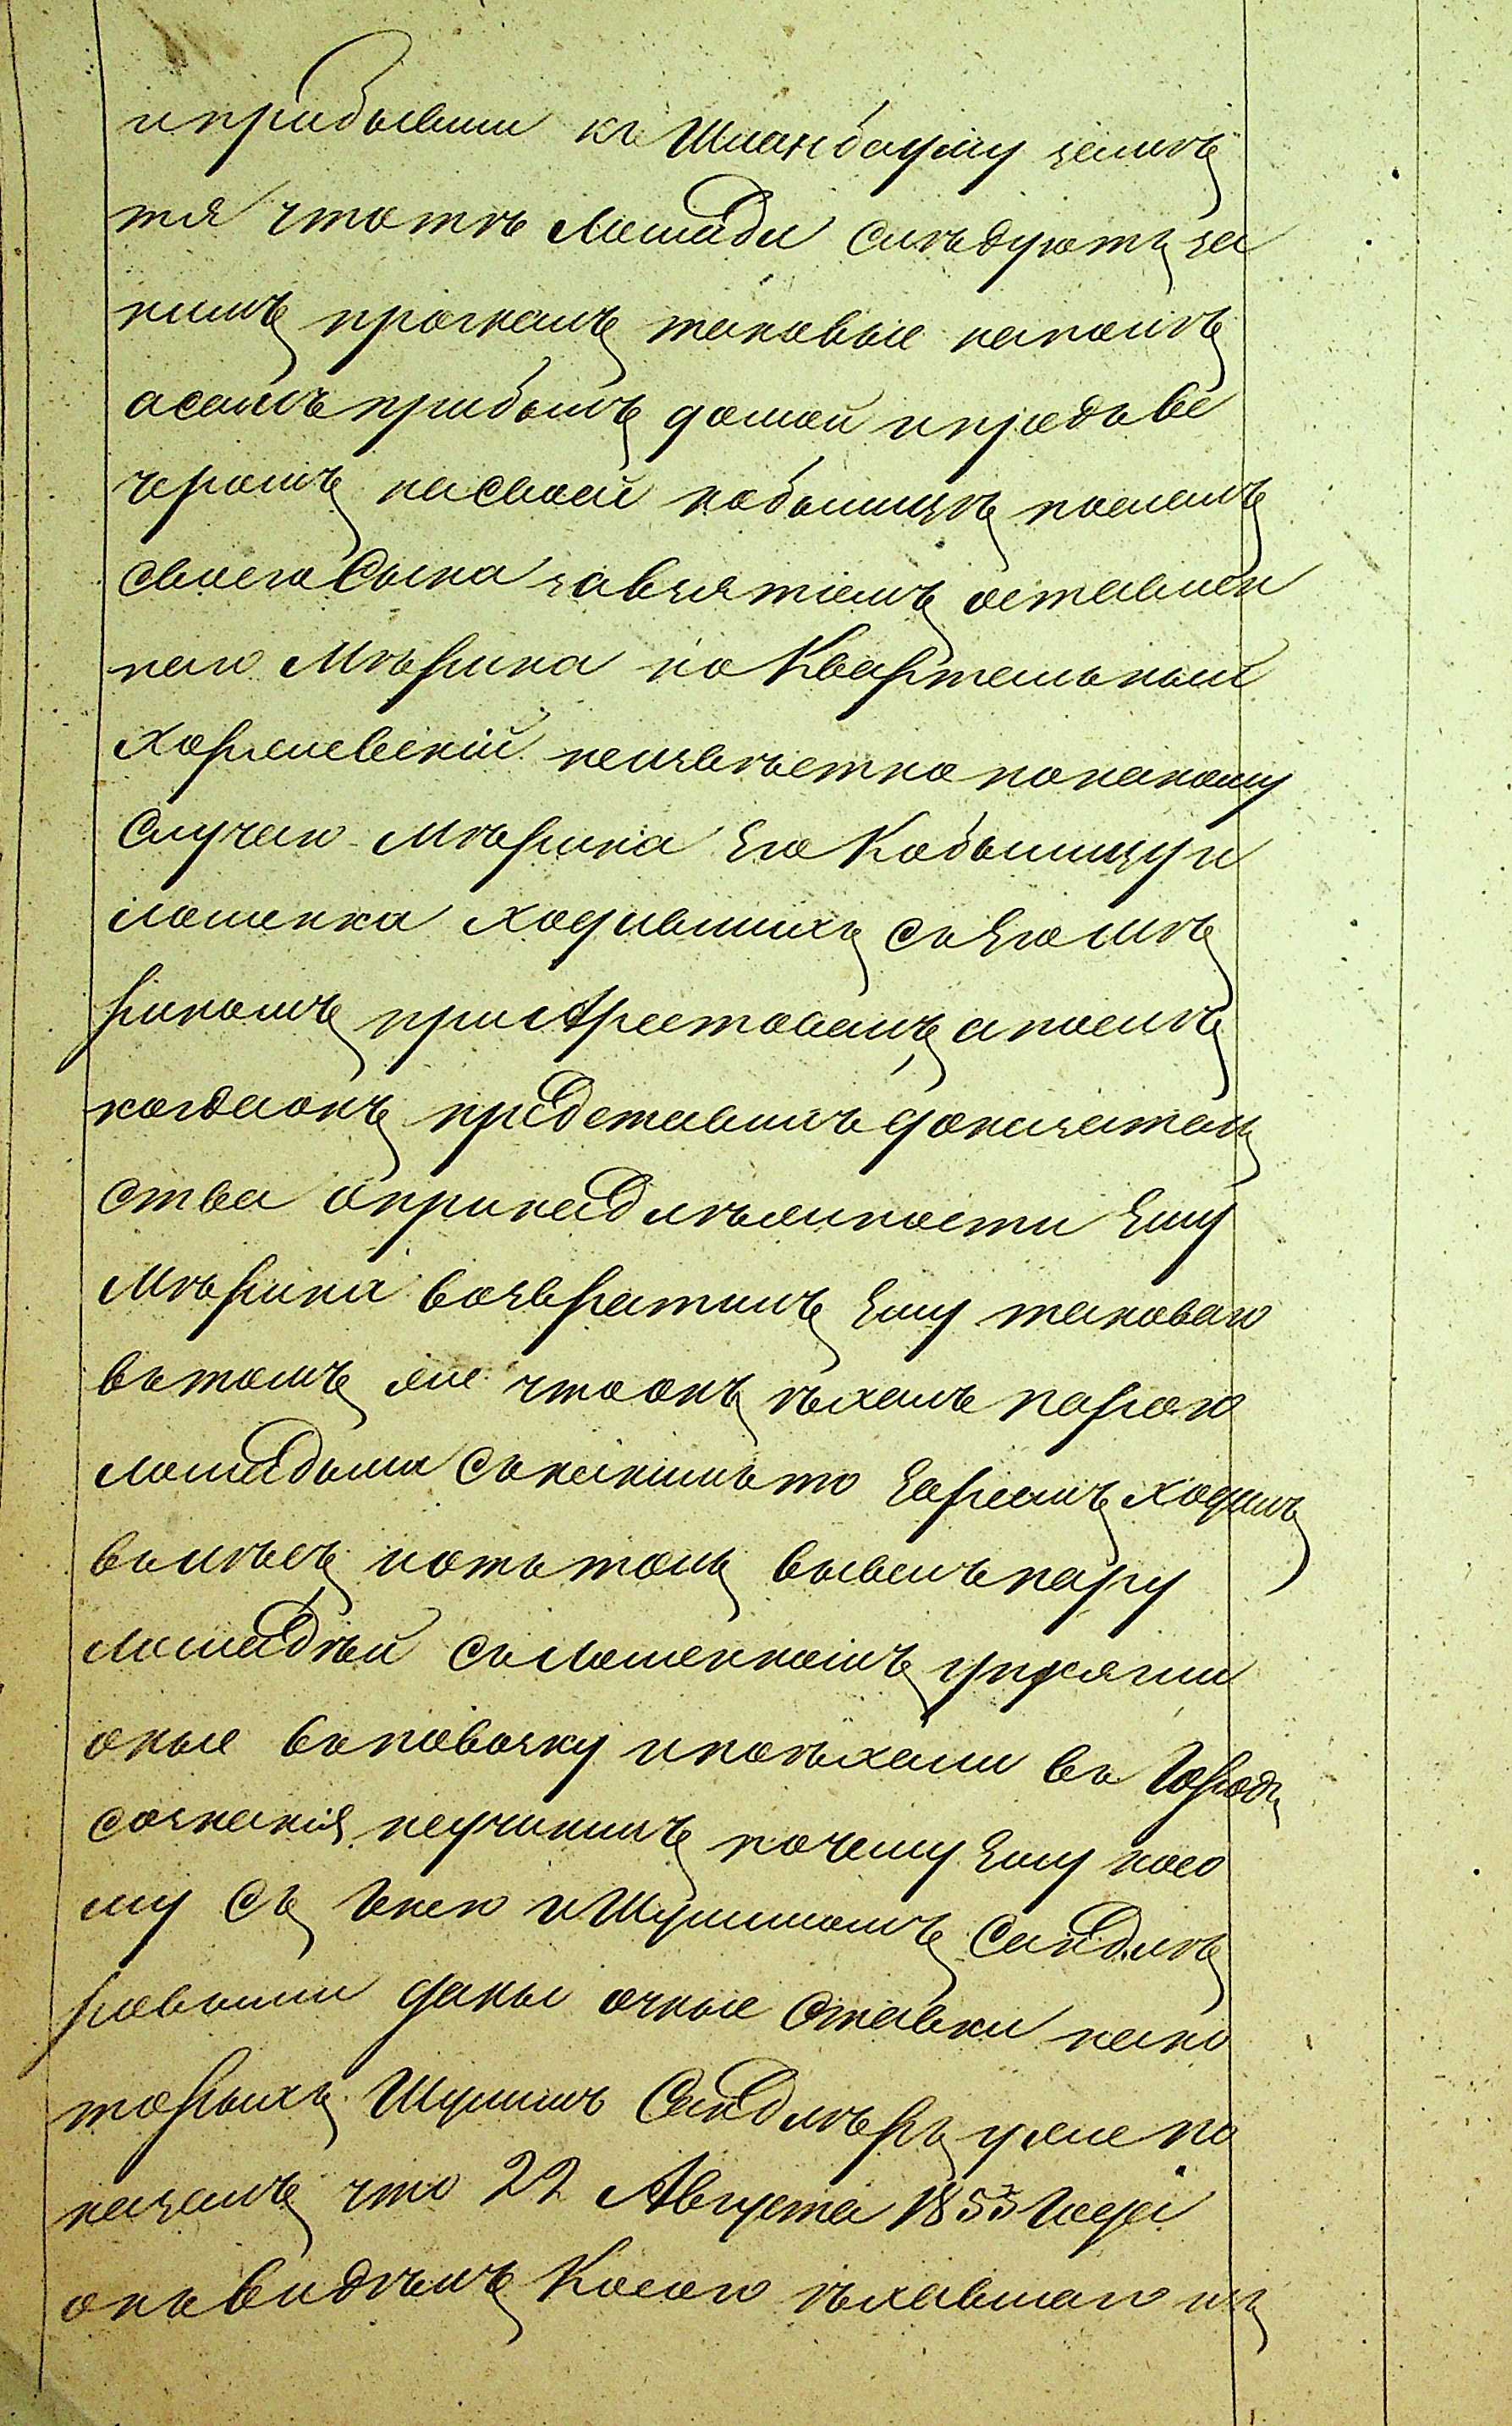 и прибывши къ Шпанбауму замѣ
тя что тѣ лошади слѣдуютъ за
нимъ прогналъ таковые на полѣ
а самъ прибылъ домой и предъ ве
черомъ на своей кобылицѣ послалъ
своего Сына за взятіемъ оставлен
наго Мѣрина но Квартальный
Хоржевскій неизвѣстно по какому
случаю Мѣрина Его Кобылицу и
лошенка ходившихъ съ Его мѣ
риномъ приАрестовалъ, а послѣ
когда онъ представилъ доказатель
ства о принадлѣжности Ему
Мѣрина возвратилъ Ему таковаго
въ томъ же что онъ ѣхалъ парою
лошадьми съ какимъ то Евреемъ ходилъ
въ лѣсъ и отътоль вывелъ пару
лошадѣй съ лошенкомъ, упрягли
оные въ повозку и поѣхали въ Городъ
сознанія неучинилъ почему Ему Косо
му съ Генею и Шулимомъ Сандлѣ
ровыми даны очные Ставки на ко
торыхъ Шулимъ Сандлѣръ уже по
казалъ что 22 Августа 1853 Года
онъ видѣлъ Косого ѣхавшаго изъ